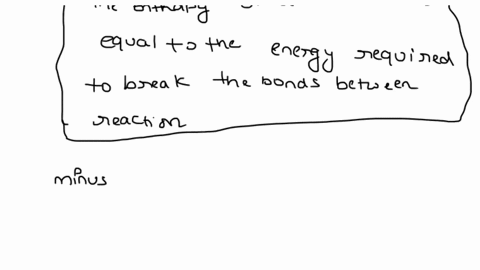 the enthalpy
equal to the energy required
to break the bonds between
reaction
minus